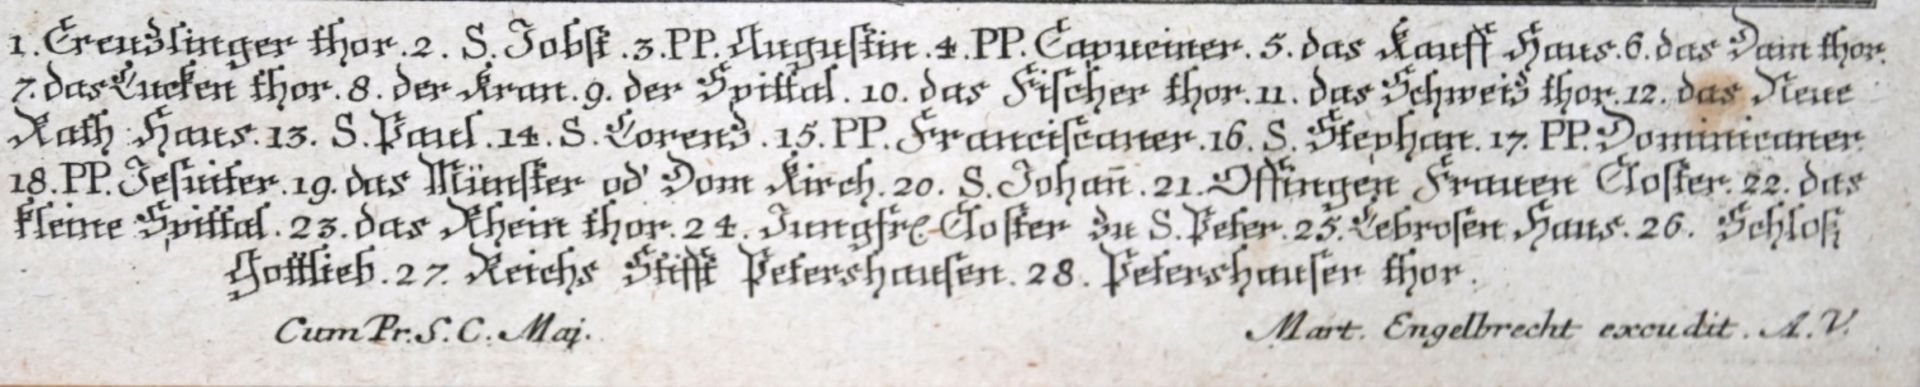 1. Creuzlinger thor. 2. S. Jobst. 3. PP. Augustin. 4. PP. Capuciner. 5. das Kauff Haus. 6. das Dam thor.
7. das Lucken thor. 8. der Kran. 9. der Spittal. 10. das Fischer thor. 11. das Schweiz thor. 12. das Neue
Rath Haus. 13. S. Paul. 14. S. Lorenz. 15. PP. Franciscaner. 16. S. Stephan. 17. PP. Dominicaner.
18. PP. Jesuiter. 19. das Münster od' Dom Kirch. 20. S. Johañ. 21. Offingen Frauen Closter. 22. das
kleine Spittal. 23. das Rhein thor. 24. Jungfrl Closter zu S. Peter. 25. Lebrosen Haus. 26. Schloß
Gottlieb. 27. Reichs Stifft Petershausen. 28. Petershauser thor.
Cum Pr. S. C. Maj.
Mart. Engelbrecht excudit. A.V.